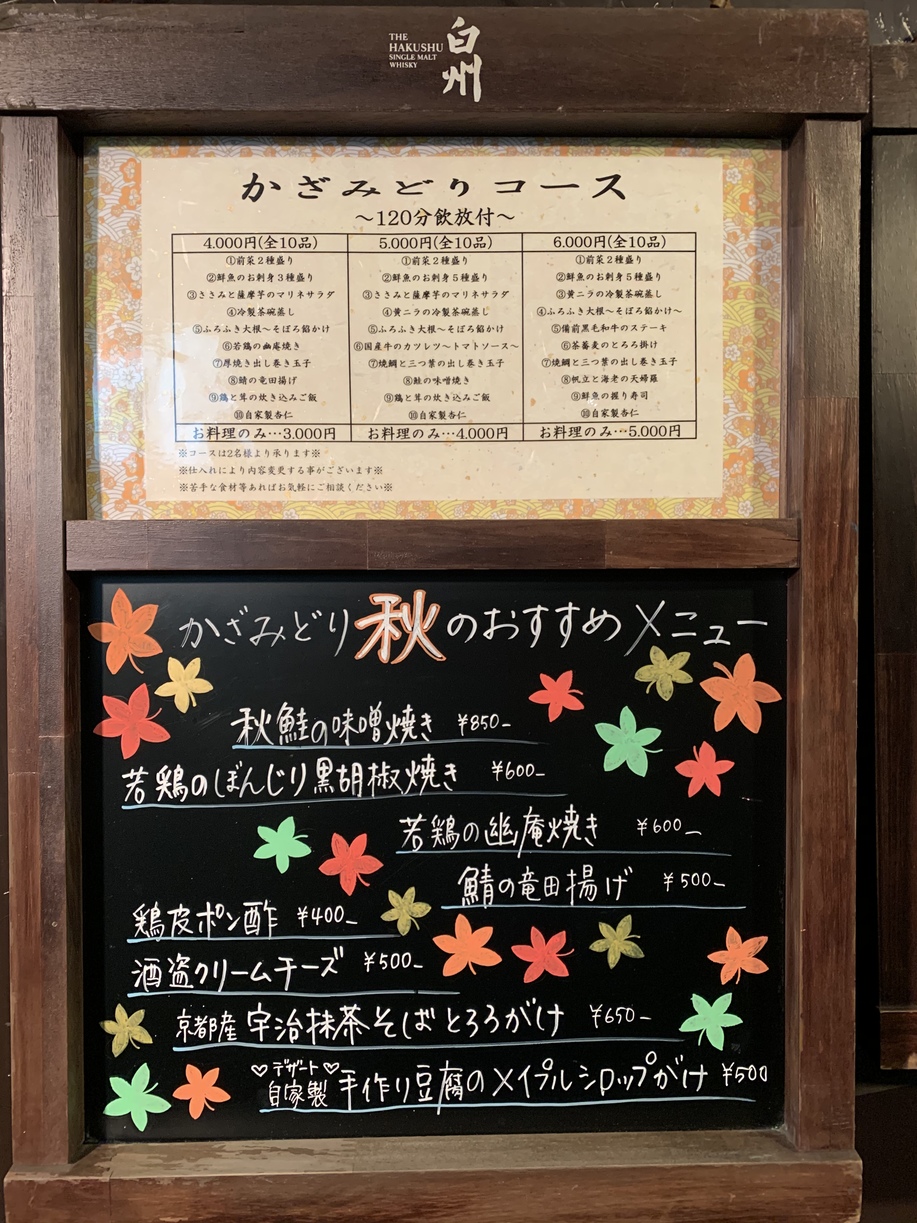 THE
HAKUSHU
SINGLE MALT
WHISKY
白州
かざみどりコース
～120分飲放付～
4.000円(全10品)
①前菜2種盛り
②鮮魚のお刺身3種盛り
③ささみと薩摩芋のマリネサラダ
④冷製茶碗蒸し
⑤ふろふき大根～そぼろ餡かけ
⑥若鶏の幽庵焼き
⑦厚焼き出し巻き玉子
⑧鯖の竜田揚げ
⑨鶏と茸の炊き込みご飯
⑩自家製杏仁
お料理のみ…3.000円
5.000円(全10品)
①前菜2種盛り
②鮮魚のお刺身5種盛り
③ささみと薩摩芋のマリネサラダ
④黄ニラの冷製茶碗蒸し
⑤ふろふき大根～そぼろ餡かけ
⑥国産牛のカツレツ～トマトソース～
⑦焼鯛と三つ葉の出し巻き玉子
⑧鮭の味噌焼き
⑨鶏と茸の炊き込みご飯
⑩自家製杏仁
お料理のみ…4.000円
6.000円(全10品)
①前菜2種盛り
②鮮魚のお刺身5種盛り
③黄ニラの冷製茶碗蒸し
④ふろふき大根～そぼろ餡かけ～
⑤備前黒毛和牛のステーキ
⑥茶蕎麦のとろろ掛け
⑦焼鯛と三つ葉の出し巻き玉子
⑧帆立と海老の天婦羅
⑨鮮魚の握り寿司
⑩自家製杏仁
お料理のみ…5.000円
※コースは2名様より承ります※
※仕入れにより内容変更する事がございます※
※苦手な食材等あればお気軽にご相談ください※
かざみどり秋のおすすめメニュー
秋鮭の味噌焼き ¥850-
若鶏のぼんじり黒胡椒焼き ¥600-
若鶏の幽庵焼き ¥600-
鯖の竜田揚げ ¥500-
鶏皮ポン酢 ¥400-
酒盗クリームチーズ ¥500-
京都産宇治抹茶そばとろろがけ ¥650-
♡デザート♡
自家製手作り豆腐のメイプルシロップがけ ¥500